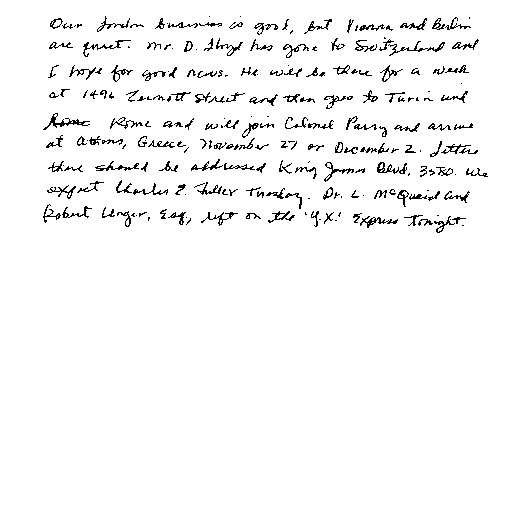 Our London business is good, but Vienna and Berlin
are quiet. Mr. D. Lloyd has gone to Switzerland and
I hope for good news. He will be there for a week
at 1496 Zermott Street and then goes to Turin and
Rome Rome and will join Colonel Parry and arrive
at Athens, Greece, November 27 or December 2. Letters
there should be addressed King James Blvd. 3580. We
expect Charles E. Fuller Tuesday. Dr. L. McQuaid and
Robert Unger, Esq., left on the 'Y.X.' Express tonight.